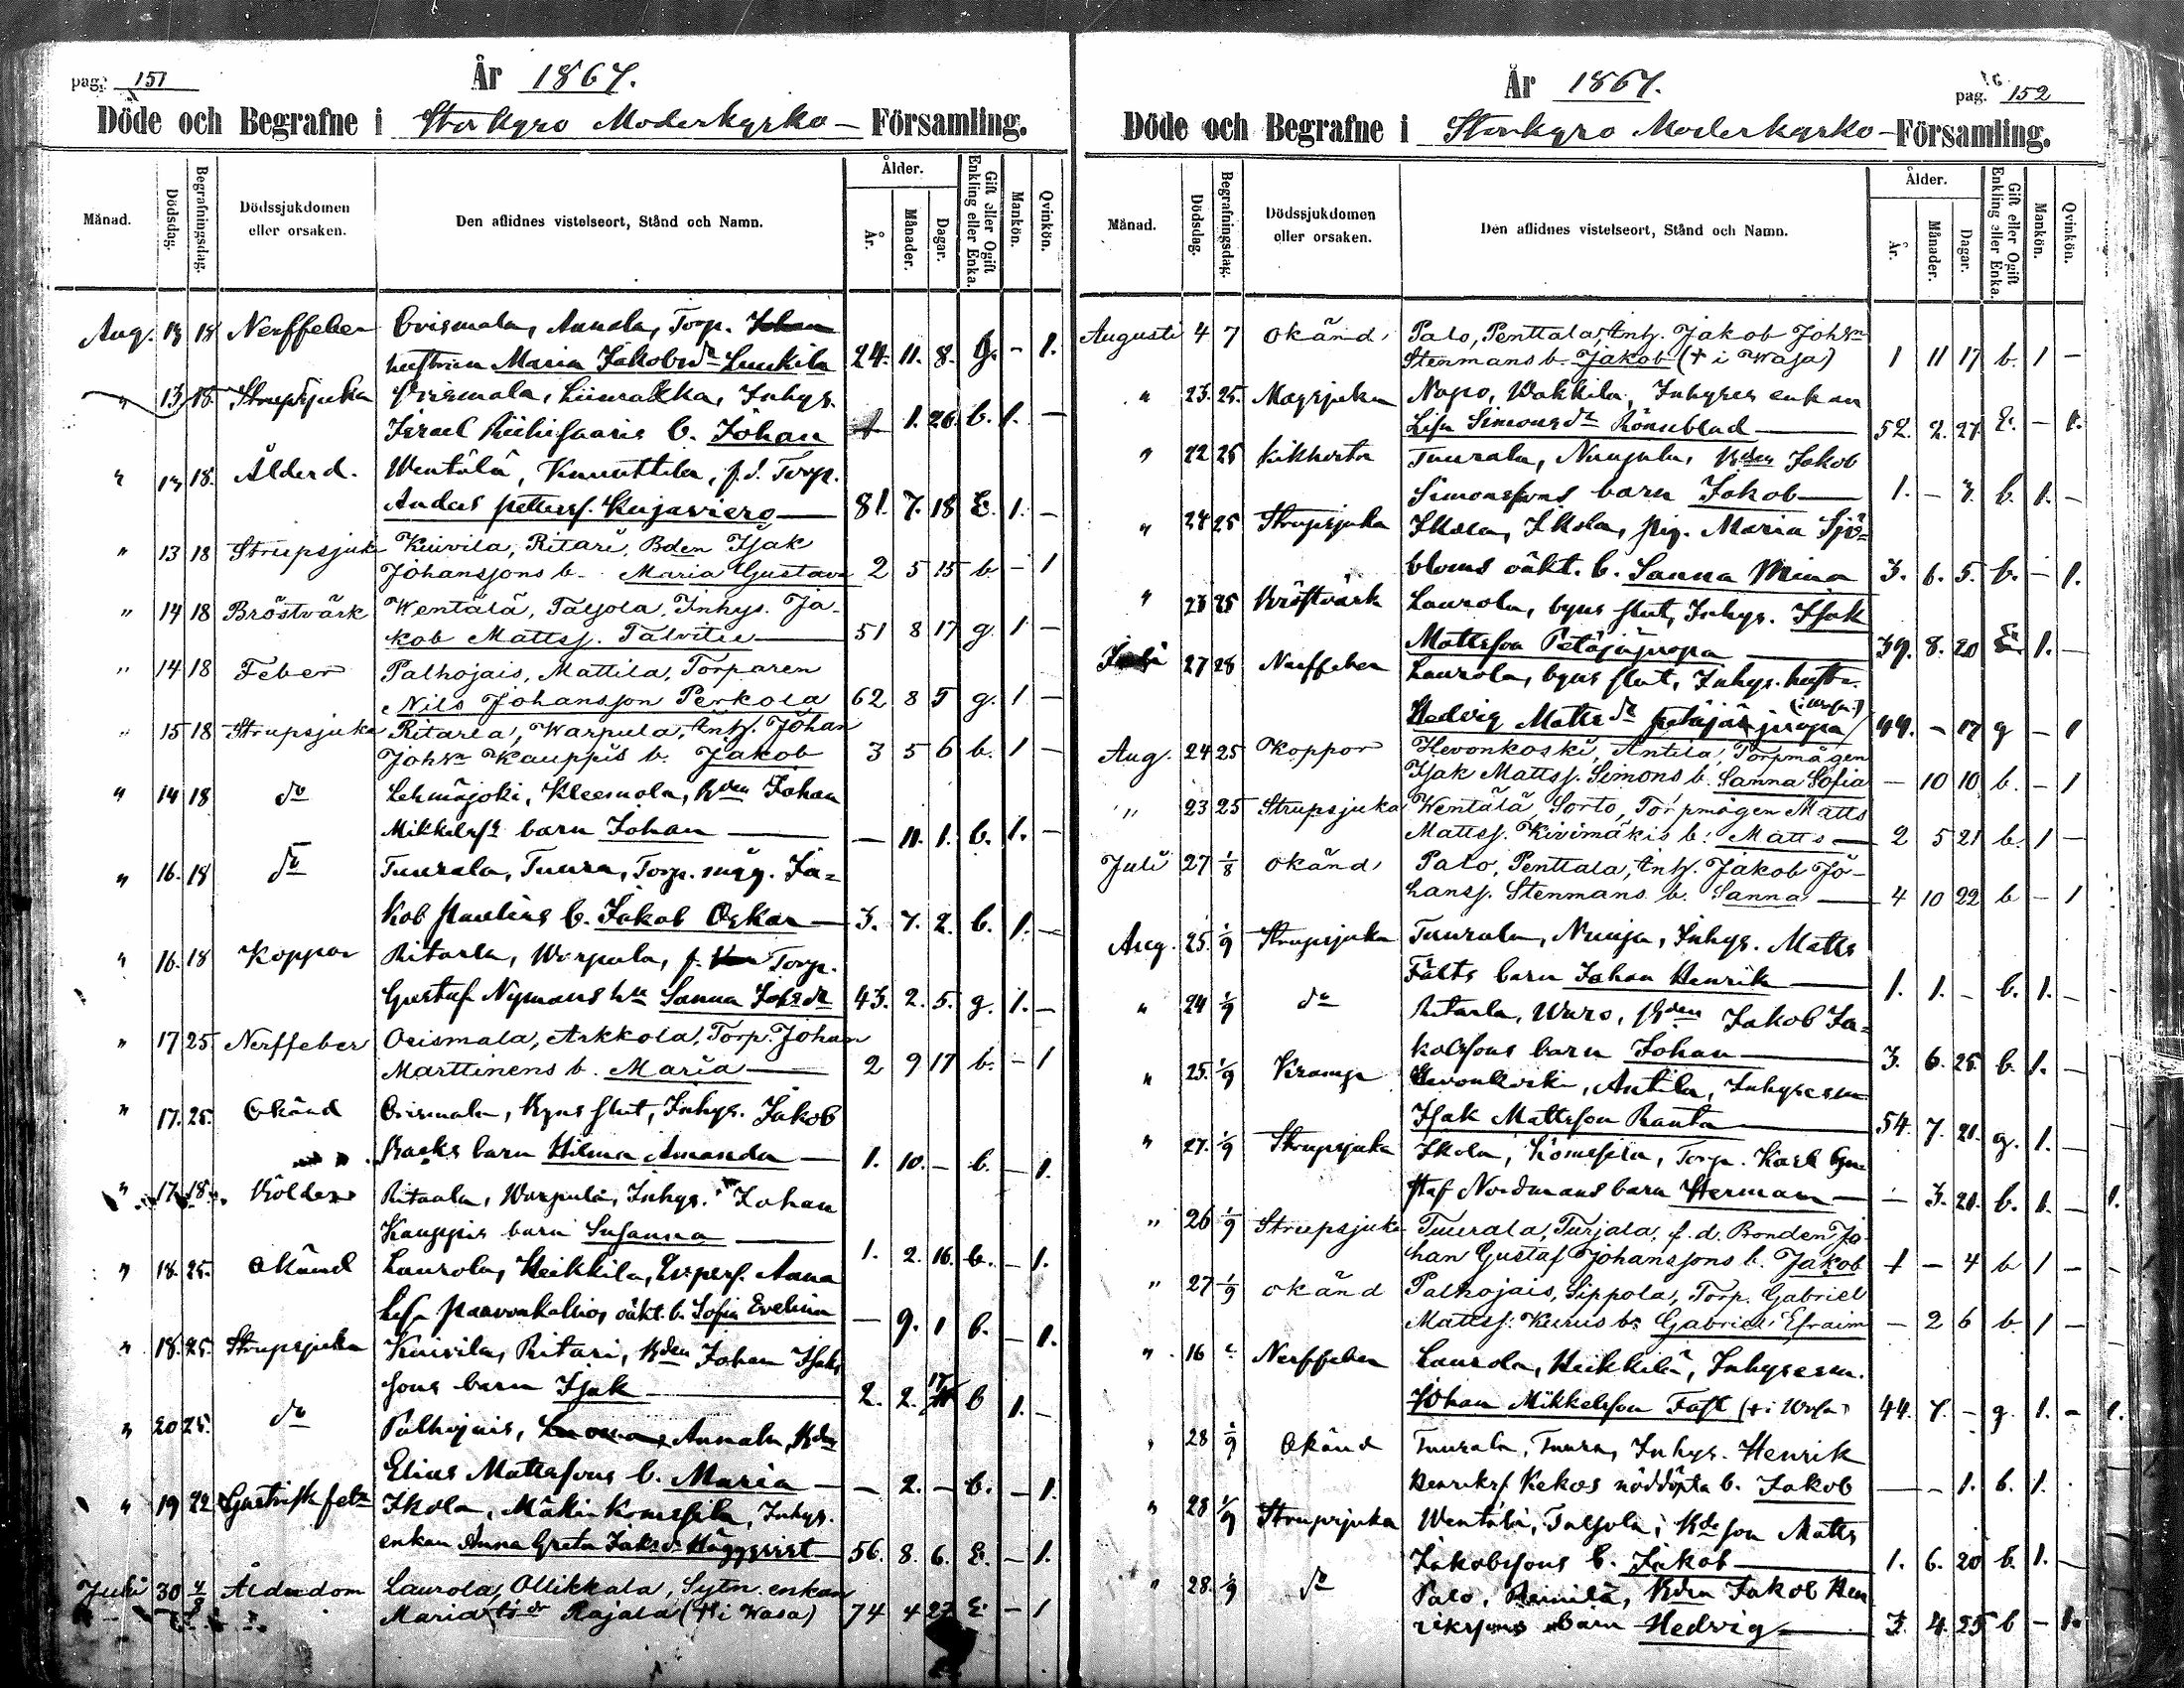 pag. 151
År 1867.
Döde och Begrafne i Storkyro Moderkyrko- Församling.
Månad. Dödsdag. Begrafningsdag. Dödssjukdomen eller orsaken. Den aflidnes vistelseort, Stånd och Namn. Ålder. År. Månader. Dagar. Gift eller Ogift Enkling eller Enka. Mankön. Qvinkön.
Aug. 13 18 Nerffeber Orismala, Annala, Torp.
hustrun Maria Jakobsdr Luukila 24. 11. 8. g. - 1.
" 13 18. Strupsjuka Orismala, Liuralka, Inhys.
Israel Riihisaaris b. Johan 1. 26. b. 1. -
" 13 18. Ålderd. Wentälä, Knuuttila, f.d. Torp.
Anders petterss. Kujaviero 81. 7. 18 E. 1. -
" 13 18 Strupsjuka Kuivila, Ritari, Bden Isak
Johanssons b. Maria Gustava 2 5 15 b - 1
" 14 18 Bröstvärk Wentälä, Talsola, Inhys. Ja-
kob Mattss. Talvitie 51 8 17 g. 1 -
" 14 18 Feber Palhojais, Mattila, Torparen
Nils Johansson Perkola 62 8 5 g. 1 -
" 15 18 Strupsjuka Ritarla, Warpula, Inh. Johan
Johsn Kauppis b. Jakob 3 5 6 b. 1 -
" 14 18 do Lehmäjoki, Kleemola, Bden Johan
Mikkelss barn Johan - 11. 1. b. 1. -
" 16. 18 do Tuurala, Tuura, Torp. måg. Ja-
kob Paulins b. Jakob Oskar 3. 7. 2. b. 1. -
" 16. 18 Koppor Ritarla, Warpula, f. Torp.
Gustaf Nymans hu Sanna Johsdr 43. 2. 5. g. 1. -
" 17 25 Nerffeber Orismala, Arkkola, Torp. Johan
Marttinens b. Maria 2 9 17 b. - 1
" 17. 25. Okänd Orismala, Byns slut, Inhys. Jakob
Backs barn Hilma Amanda 1. 10. - b. - 1.
" 17 18. Kölder Ritarla, Warpula, Inhys. Johan
Kauppis barn Susanna 1. 2. 16. b. - 1.
" 18. 25. Okänd Laurola, Heikkila, Anna
Lisa Paavonkallios oäkt. b. Sofia Evelina - 9. 1 b. - 1.
" 18. 25. Strupsjuka Kuivila, Ritari, Bden Johan Isaks
sons barn Isak 2. 2. 17 b 1. -
" 20 25. do Palhojais, Annala, Bden
Elias Mattssons b. Maria - 2. - b. - 1.
" 19 22 Gastrisk feber Ikola, Mäki Komsila, Inhys.
enkan Anna Greta Jaksdr Häggqvist 56. 8. 6. E. - 1.
Juli 30 4/8 Ålderdom Laurola, Ollikkala, Sytn. enkan
Maria Rajala († i Wasa) 74 4 27 E - 1
pag. 152
År 1867.
Döde och Begrafne i Storkyro Moderkyrko- Församling.
Månad. Dödsdag. Begrafningsdag. Dödssjukdomen eller orsaken. Den aflidnes vistelseort, Stånd och Namn. Ålder. År. Månader. Dagar. Gift eller Ogift Enkling eller Enka. Mankön. Qvinkön.
Augusti 4 7 okänd Palo, Penttala, Inh. Jakob Johsn
Stenmans b. Jakob († i Wasa) 1 11 17 b. 1 -
" 23. 25. Magsjuka Napo, Wakkila, Inhyses enkan
Lisa Simonsdr Rönnblad 52. 2. 27. E. - 1.
" 22 25 kikhosta Tuurala, Nuujala, Bden Jakob
Simonssons barn Jakob 1. - 7. b. 1. -
" 24 25 Strupsjuka Ikola, Ikola, pig. Maria Sjö-
bloms oäkt. b. Sanna Mina 3. 6. 5. b. - 1.
" 23 25 Bröstvärk Laurola, byns slut, Inhys. Isak
Mattsson Petäjäjuopa 39. 8. 20 1. -
27 28 Nerffeber Laurola, byns slut, Inhys. hustr.
Hedvig Mattsdr petäjäjuopa (i Wasa) 44. - 17 g - 1
Aug. 24 25 Koppor Hevonkoski, Antila, Torpmågen
Isak Mattss. Simons b. Sanna Sofia - 10 10 b. - 1
" 23 25 Strupsjuka Wentälä, Sorto, Torpmågen Matts
Mattss. Kivimäkis b. Matts 2 5 21 b. 1 -
Juli 27 1/8 okänd Palo, Penttala, Inh. Jakob Jo-
hanss. Stenmans b. Sanna 4 10 22 b - 1
Aug. 25. 1/9 Strupsjuka Tuurala, Nuuja, Inhys. Matts
Fälts barn Johan Henrik 1. 1. - b. 1. -
" 24 1/9 do Ritarla, Waro, Bden Jakob Ja-
kobssons barn Johan 3. 6. 25. b. 1. -
" 25. 1/9 Kramp Hevonkoski, Antila, Inhysesm
Isak Mattsson Ranta 54. 7. 21. g. 1. -
" 27. 1/9 Strupsjuka Ikola, Komsila, Torp. Karl Gu-
staf Nordmans barn Herman - 3. 21. b. 1. - 1.
" 26 1/9 Strupsjuka Tuurala, Turjala, f.d. Bonden Jo-
han Gustaf Johanssons b. Jakob 1 - 4 b 1 -
" 27 1/9 okänd Palhojais, Sippola, Torp. Gabriel
Mattss. Kuus b. Gabriel Efraim - 2 6 b. 1 -
" 16 Nerffeber Laurola, Heikkilä, Inhysesm.
Johan Mikkelsson Fast († i Wasa) 44. 7. - g. 1. - 1.
" 28 1/9 Okänd Tuurala, Tuura, Inhys. Henrik
Henrikss. Kekos nöddöpta b. Jakob - - 1. b. 1.
" 28 1/9 Strupsjuka Wentälä, Talsola, Bdeson Matts
Jakobssons b. Jakob 1. 6. 20 b. 1. -
" 28. 1/9 do Palo, Reinilä, Bden Jakob Hen
rikssons barn Hedvig 3. 4. 25 b - 1.